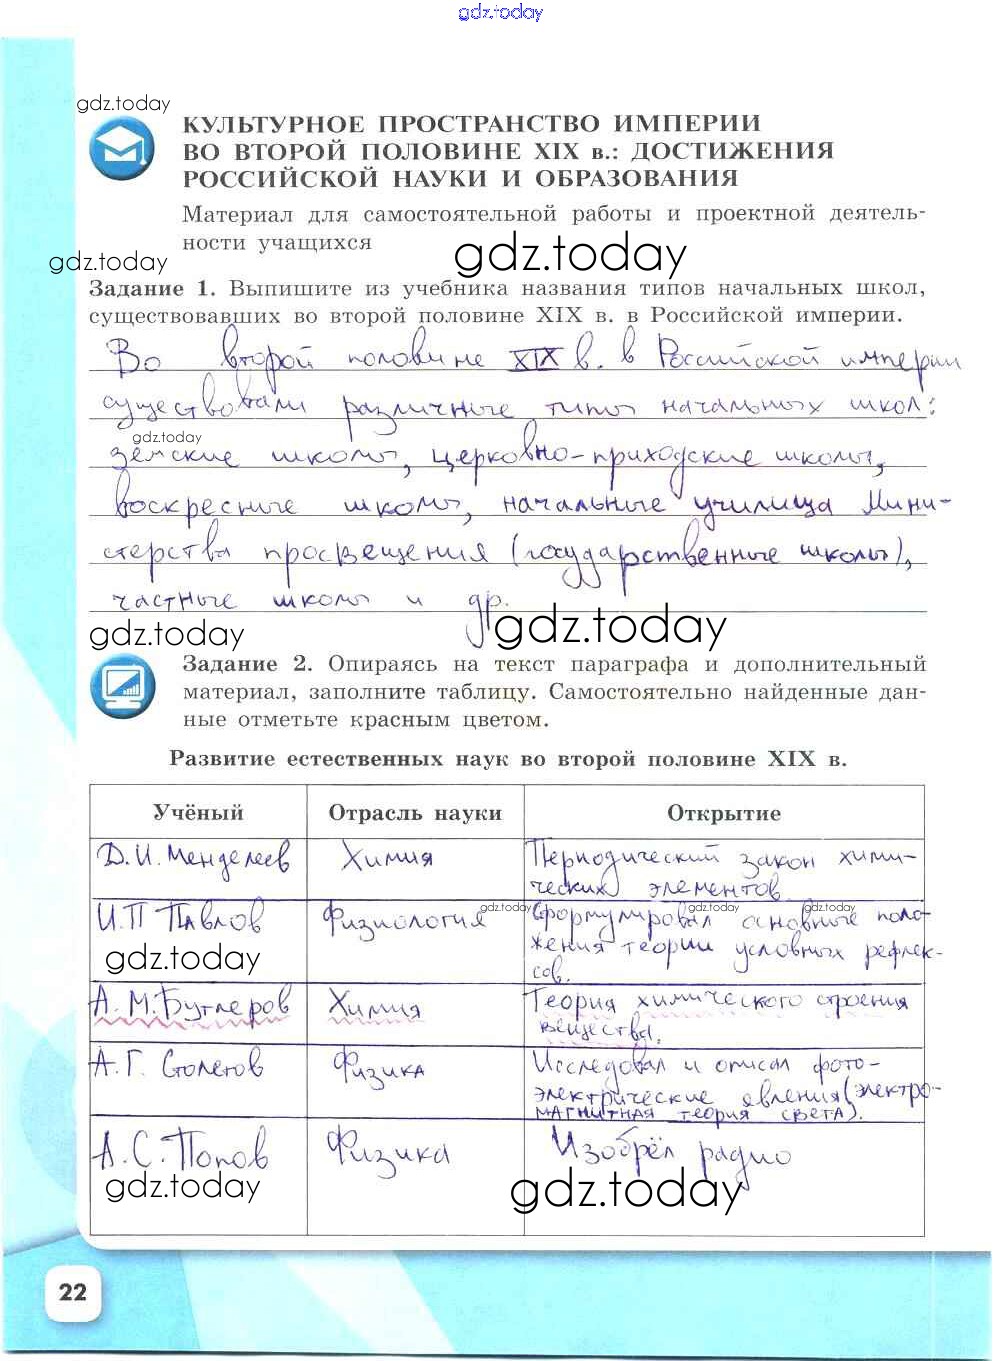 gdz.today
gdz.today
КУЛЬТУРНОЕ ПРОСТРАНСТВО ИМПЕРИИ
ВО ВТОРОЙ ПОЛОВИНЕ XIX в.: ДОСТИЖЕНИЯ
РОССИЙСКОЙ НАУКИ И ОБРАЗОВАНИЯ
Материал для самостоятельной работы и проектной деятель-
ности учащихся
gdz.today
gdz.today
Задание 1. Выпишите из учебника названия типов начальных школ,
существовавших во второй половине XIX в. в Российской империи.
Во второй половине XIX в. в Российской империи
существовали различные типы начальных школ:
gdz.today
земские школы, церковно-приходские школы,
воскресные школы, начальные училища Мини-
стерства просвещения (государственные школы),
частные школы и др.
gdz.today
gdz.today
Задание 2. Опираясь на текст параграфа и дополнительный
материал, заполните таблицу. Самостоятельно найденные дан-
ные отметьте красным цветом.
Развитие естественных наук во второй половине XIX в.
Учёный Отрасль науки Открытие
Д.И. Менделеев Химия Периодический закон хими-
ческих элементов
И.П Павлов Физиология Сформулировал основные поло-
gdz.today gdz.today gdz.today
жения теории условных рефлек-
сов.
А.М. Бутлеров Химия Теория химического строения
вещества.
А.Г. Столетов Физика Исследовал и описал фото-
электрические явления (электро-
магнитная теория света).
А.С. Попов Физика Изобрёл радио
gdz.today
gdz.today
22